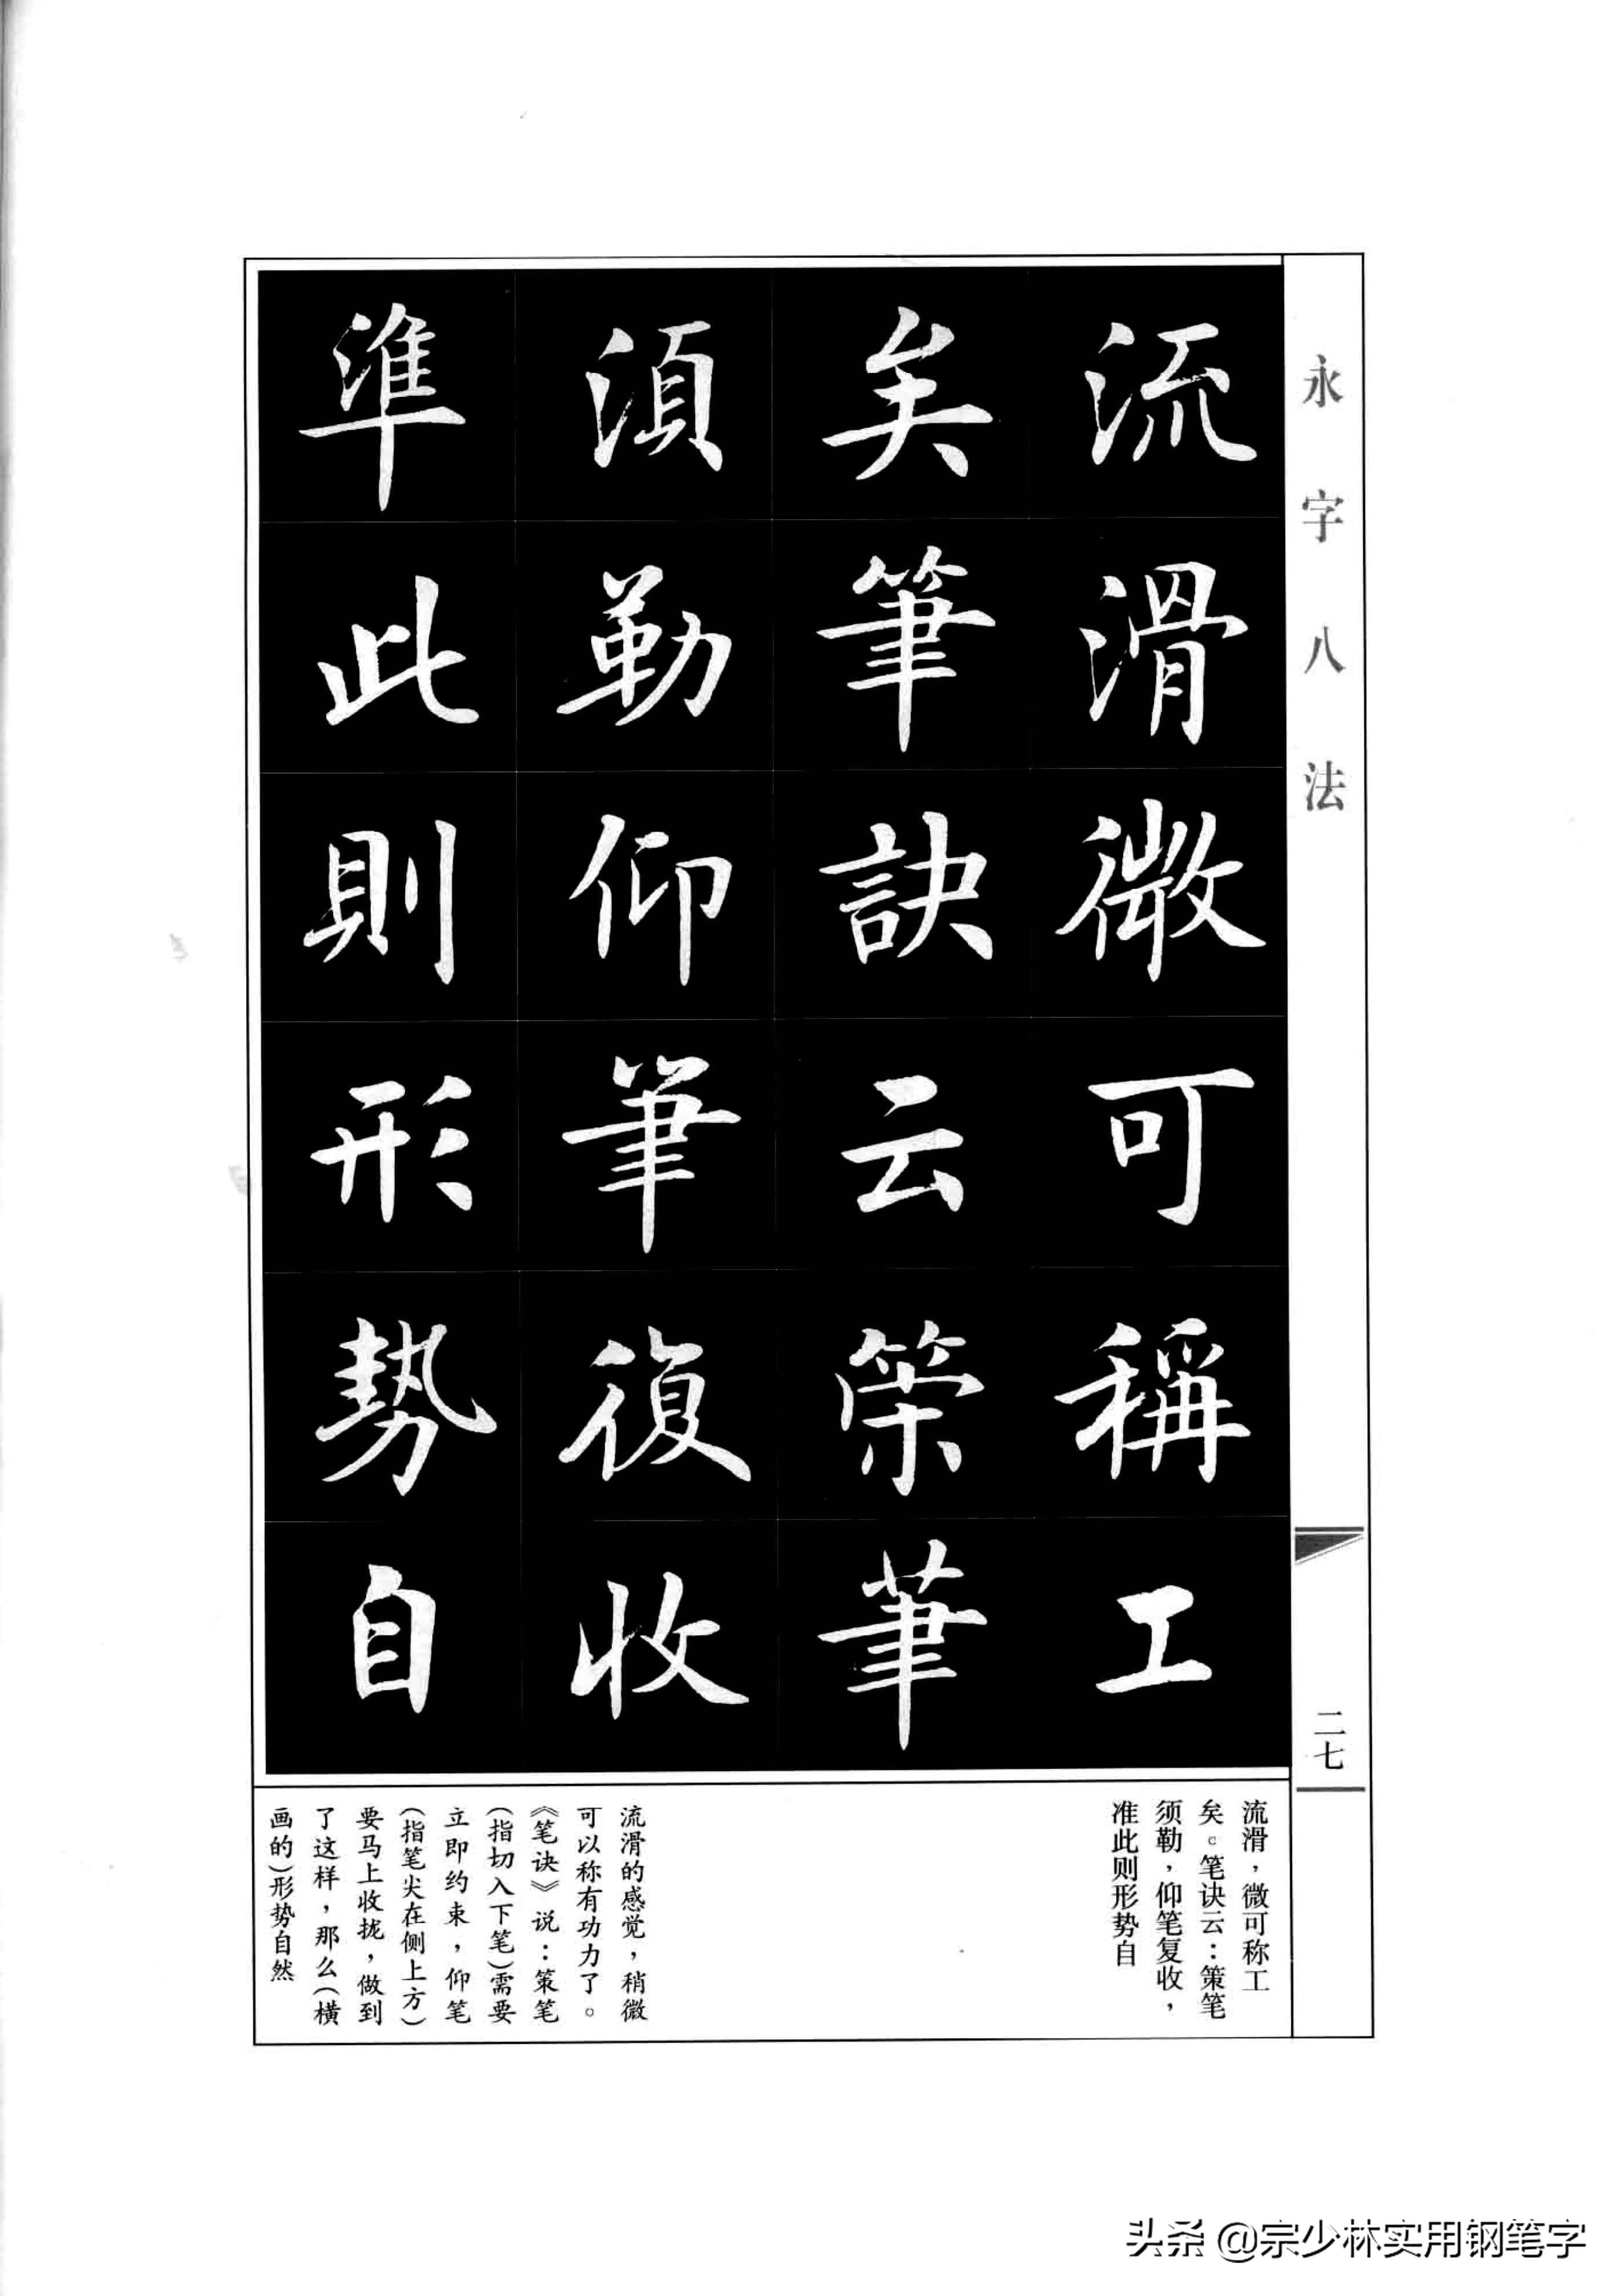 永字八法
二七
流滑微可稱工
矣筆訣云策筆
須勒仰筆復收
準此則形勢自
流滑，微可称工
矣。笔诀云：策笔
须勒，仰笔复收，
准此则形势自
流滑的感觉，稍微
可以称有功力了。
《笔诀》说：策笔
(指切入下笔)需要
立即约束，仰笔
(指笔尖在侧上方)
要马上收拢，做到
了这样，那么(横
画的)形势自然
头条 @宗少林实用钢笔字